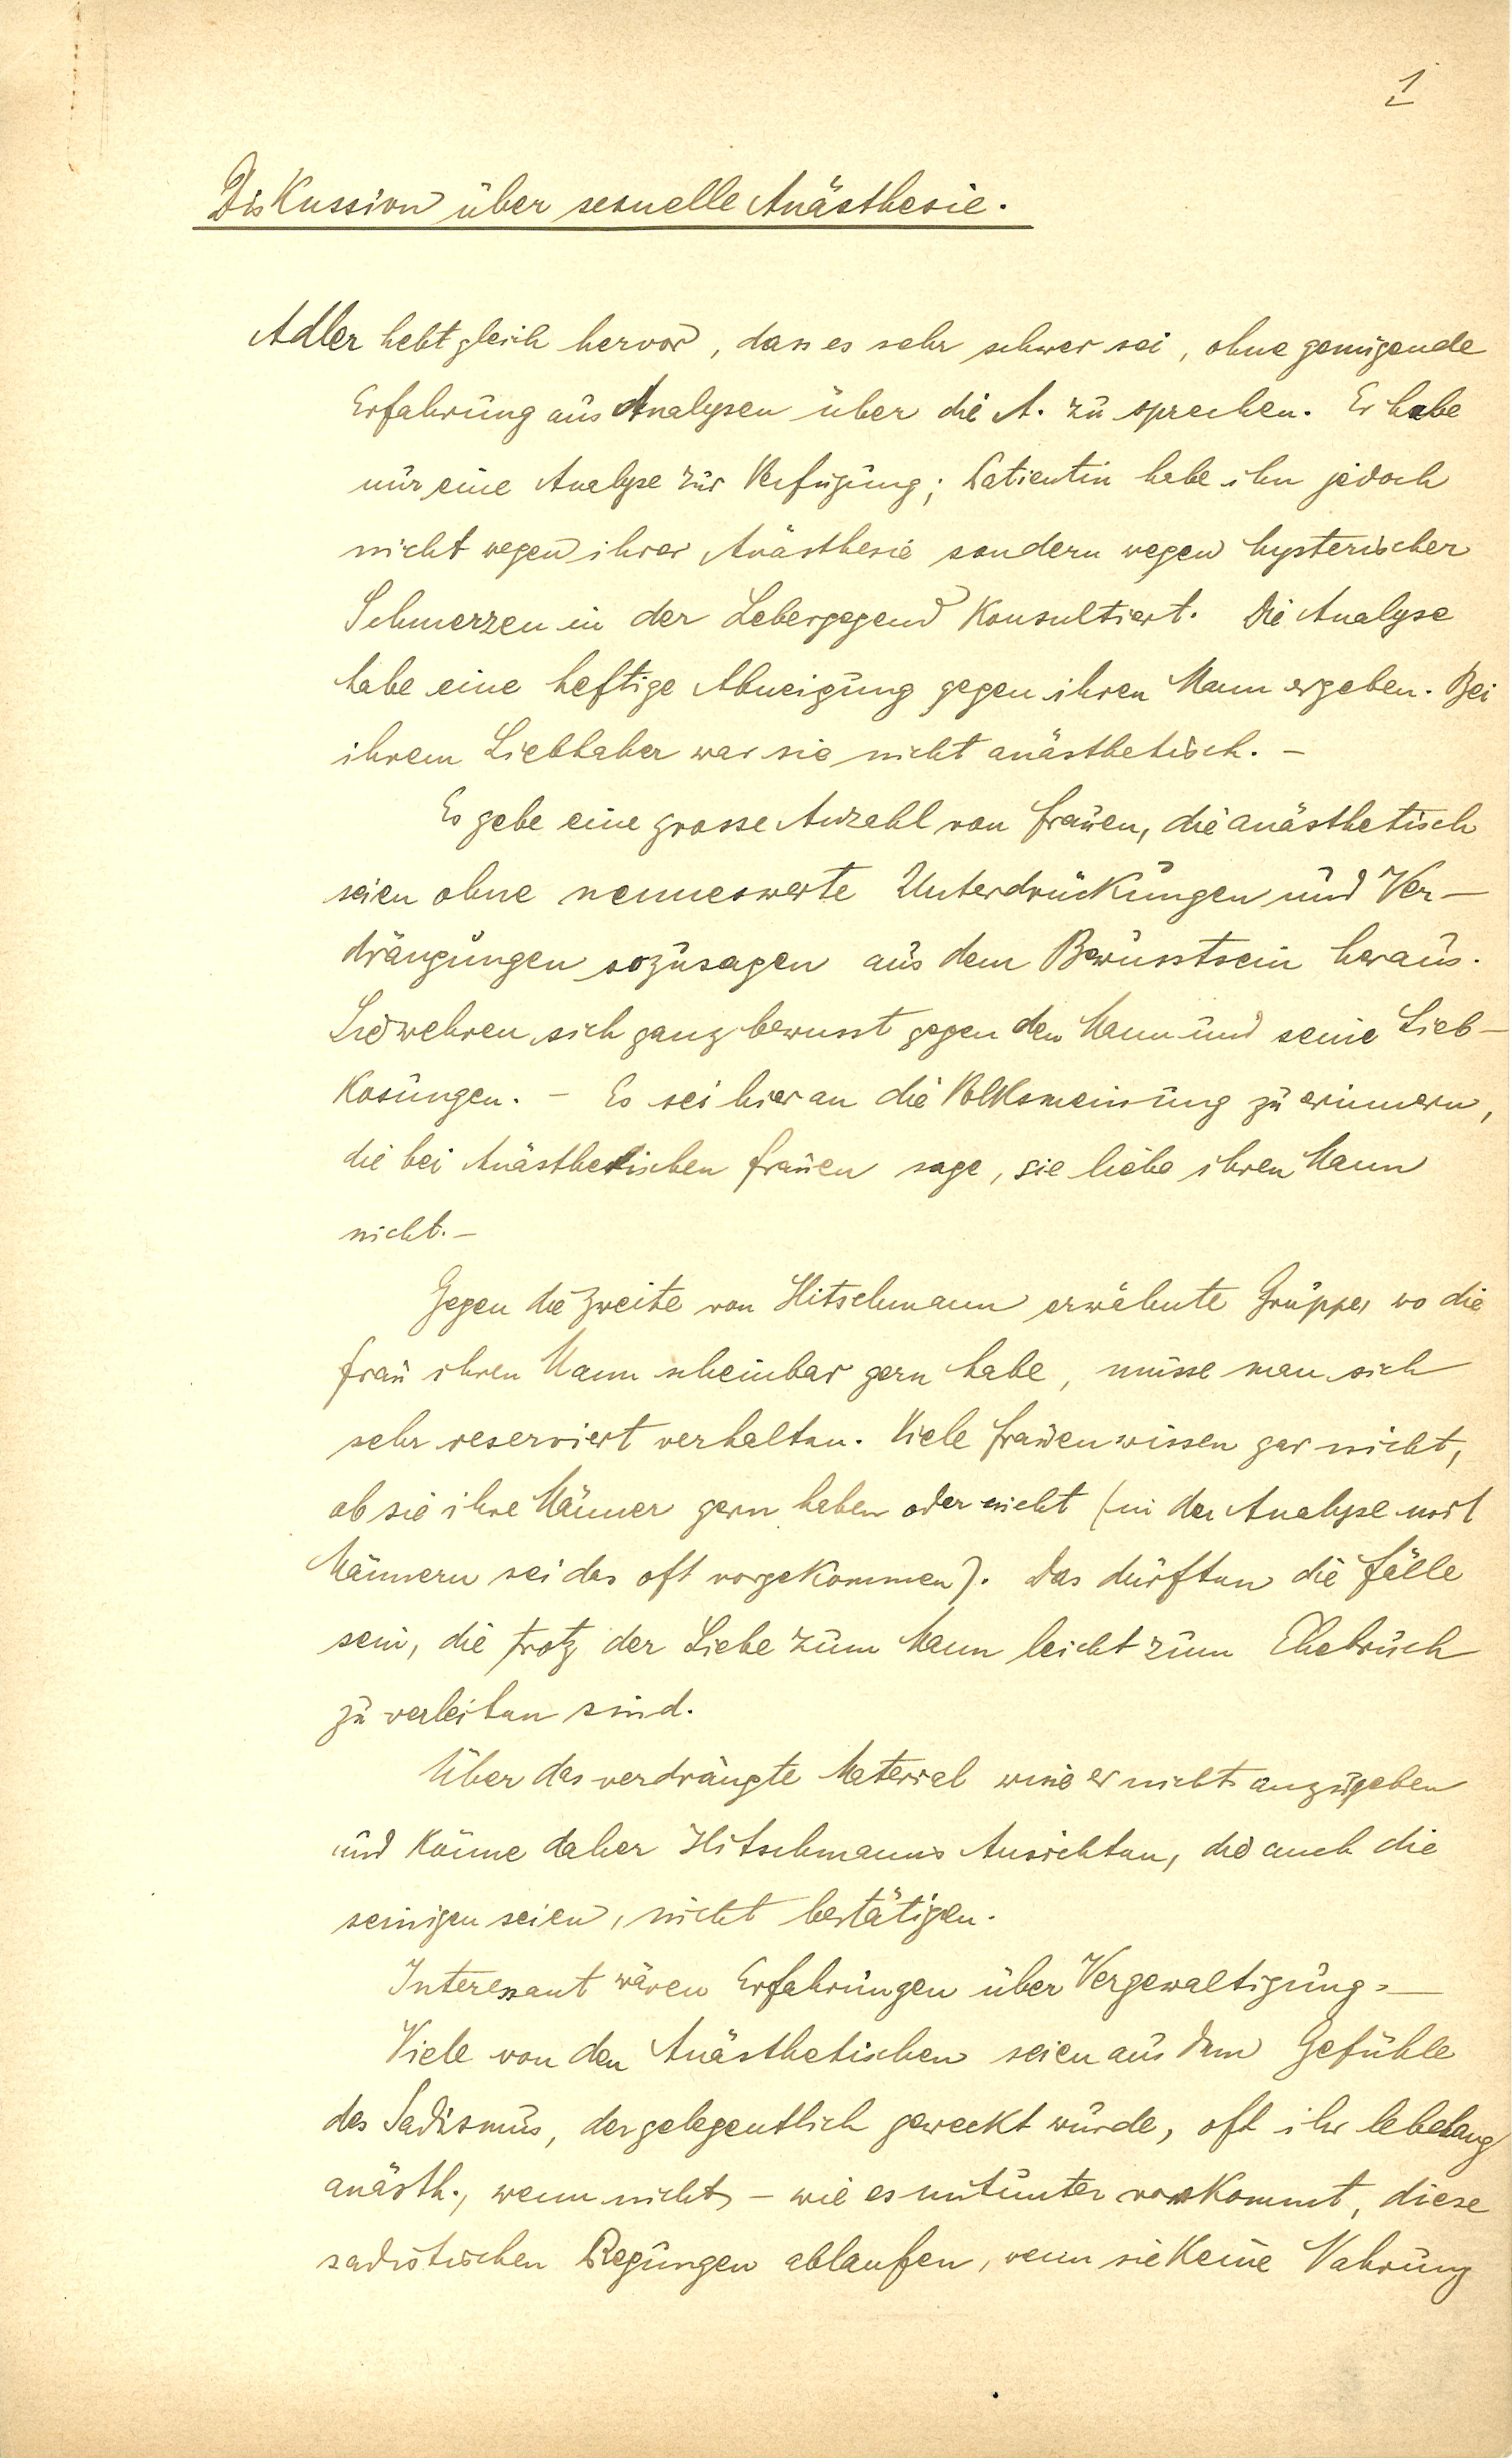 1
Diskussion über sexuelle Anästhesie.
Adler hebt gleich hervor, dass es sehr schwer sei, ohne genügende
Erfahrung aus Analysen über die A. zu sprechen. Er habe
nur eine Analyse zur Verfügung; Patientin habe ihn jedoch
nicht wegen ihrer Anästhesie sondern wegen hysterischer
Schmerzen in der Lebergegend konsultiert. Die Analyse
habe eine heftige Abneigung gegen ihren Mann ergeben. Bei
ihrem Liebhaber war sie nicht anästhetisch. –
Es gebe eine grosse Anzahl von Frauen, die anästhetisch
seien ohne nenneswerte Unterdrückungen und Ver-
drängungen sozusagen aus dem Bewusstsein heraus.
Sie wehren sich ganz bewusst gegen den Mann und seine Lieb-
kosungen. – Es sei hier an die Volksmeinung zu erinnern,
die bei Anästhetischen Frauen sage, sie liebe ihren Mann
nicht. –
Gegen die zweite von Hitschmann erwähnte Gruppe, wo die
Frau ihren Mann scheinbar gern habe, müsse man sich
sehr reserviert verhalten. Viele Frauen wissen gar nicht,
ob sie ihre Männer gern haben oder nicht (in der Analyse mit
Männern sei das oft vorgekommen). Das dürften die Fälle
sein, die trotz der Liebe zum Mann leicht zum Ehebruch
zu verleiten sind.
Über das verdrängte Material wisse er nichts anzugeben
und könne daher Hitschmanns Ansichten, die auch die
seinigen seien, nicht bestätigen.
Interessant wären Erfahrungen über Vergewaltigung. –
Viele von den Anästhetischen seien aus dem Gefühle
des Sadismus, der gelegentlich geweckt wurde, oft ihr lebelang
anästh., wenn nicht – wie es mitunter vorkommt, diese
sadistischen Regungen ablaufen, wenn sie keine Nahrung